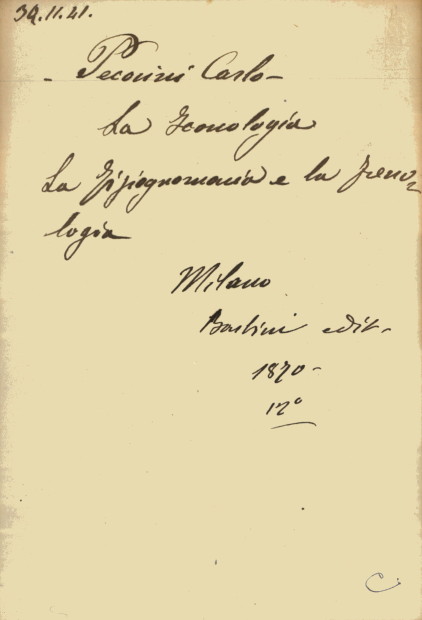 39.11.41.
- Pecorini Carlo -
La Iconologia
La Fisiognomania e la Freno-
logia
Milano
edit -
1870 -
12°
C.